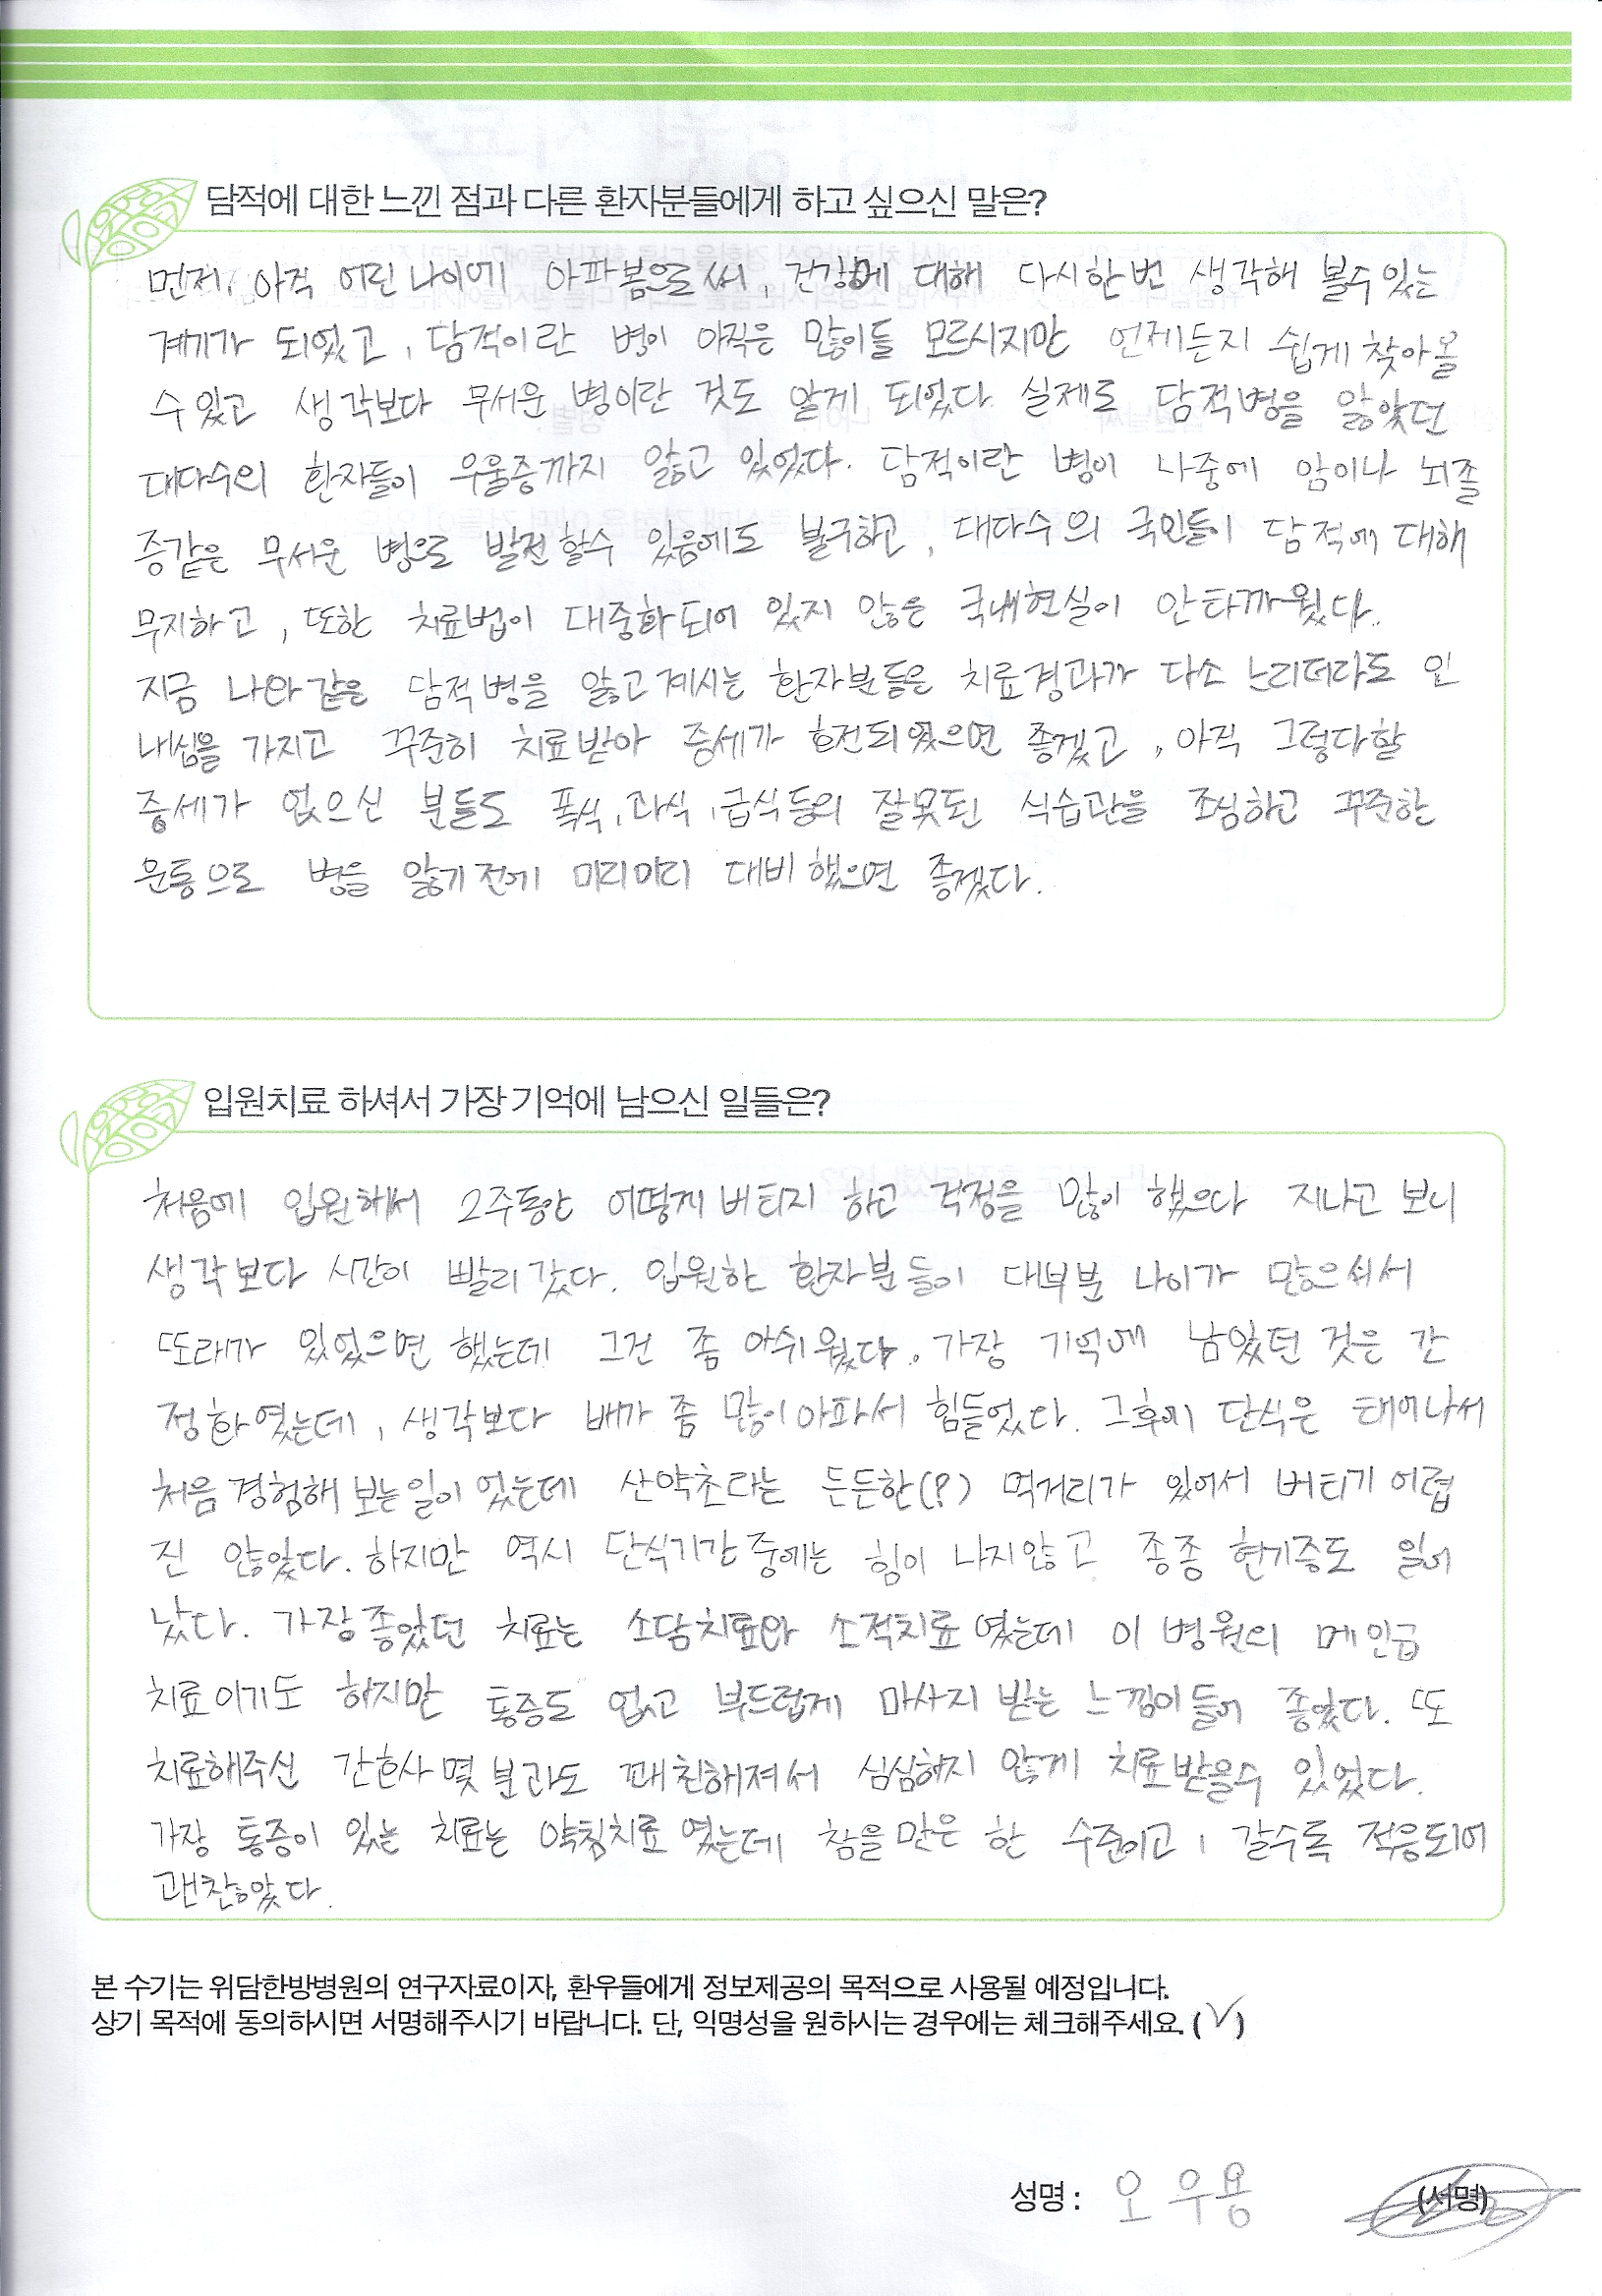 담적에 대한 느낀 점과 다른 환자분들에게 하고 싶으신 말은?
먼저, 아직 어린 나이에 아파봄으로써, 건강에 대해 다시한번 생각해 볼수 있는
계기가 되었고, 담적이란 병이 아직은 많이들 모르시지만 언제든지 쉽게 찾아올
수 있고 생각보다 무서운 병이란 것도 알게 되었다. 실제로 담적병을 앓았던
대다수의 환자들이 우울증까지 앓고 있었다. 담적이란 병이 나중에 암이나 뇌졸
증같은 무서운 병으로 발전할수 있음에도 불구하고, 대다수의 국민들이 담적에 대해
무지하고, 또한 치료법이 대중화되어 있지 않은 국내현실이 안타까웠다.
지금 나와 같은 담적병을 앓고 계시는 환자분들은 치료경과가 다소 느리더라도 인
내심을 가지고 꾸준히 치료받아 증세가 호전되었으면 좋겠고, 아직 그렇다할
증세가 없으신 분들도 폭식, 과식, 급식등의 잘못된 식습관을 조심하고 꾸준한
운동으로 병을 앓기전에 미리미리 대비했으면 좋겠다.
입원치료 하셔서 가장 기억에 남으신 일들은?
처음에 입원해서 2주동안 어떻게 버티지 하고 걱정을 많이 했으나 지나고 보니
생각보다 시간이 빨리 갔다. 입원한 환자분들이 대부분 나이가 많으셔서
또래가 있었으면 했는데 그건 좀 아쉬웠다. 가장 기억에 남았던 것은 간
정화였는데, 생각보다 배가 좀 많이 아파서 힘들었다. 그후에 단식은 태어나서
처음 경험해 보는일이었는데 산약초라는 든든한(?) 먹거리가 있어서 버티기 어렵
진 않았다. 하지만 역시 단식기간 중에는 힘이 나지않고 종종 현기증도 일어
났다. 가장 좋았던 치료는 소담치료와 소적치료였는데 이 병원의 메인급
치료이기도 하지만 통증도 없고 부드럽게 마사지 받는 느낌이 들어 좋았다. 또
치료해주신 간호사 몇 분과도 꽤 친해져서 심심하지 않게 치료받을수 있었다.
가장 통증이 있는 치료는 약침치료였는데 참을 만은 한 수준이고, 갈수록 적응되어
괜찮았다.
본 수기는 위담한방병원의 연구자료이자, 환우들에게 정보제공의 목적으로 사용될 예정입니다.
상기 목적에 동의하시면 서명해주시기 바랍니다. 단, 익명성을 원하시는 경우에는 체크해주세요. (✓)
성명 : 오우용 (서명)